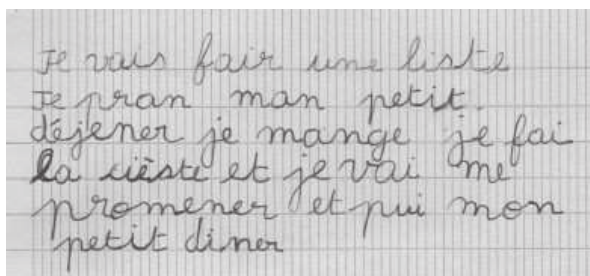 Je vais fair une liste
Je pran man petit.
déjener je mange je fai
la cièste et je vai me
promener et pui mon
petit diner